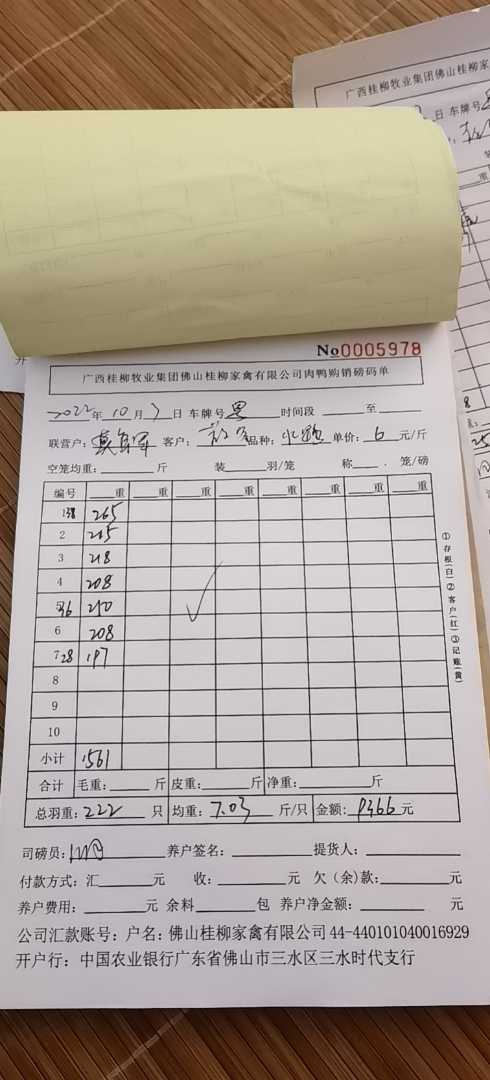 广西桂柳牧业集团佛山桂柳家
日 车牌号
No0005978
广西桂柳牧业集团佛山桂柳家禽有限公司肉鸭购销磅码单
2022年 10月 3日 车牌号 时间段 至
联营户: 客户: 品种: 单价: 6 元/斤
空笼均重: 斤 装 羽/笼 称 . 笼/磅
编号 重 重 重 重 重 重 重
1 38 265
2 215
3 218
4 208
5 36 210
6 208
7 28 197
8
9
10
小计 1561
合计 毛重: 斤 皮重: 斤 净重: 斤
总羽重: 222 只 均重: 7.03 斤/只 金额: 9366 元
①存根(白)②客户(红)③记账(黄)
司磅员: 养户签名: 提货人:
付款方式: 汇 元 收: 元 欠(余)款: 元
养户费用: 元 余料 包 养户净金额: 元
公司汇款账号: 户名: 佛山桂柳家禽有限公司 44-440101040016929
开户行: 中国农业银行广东省佛山市三水区三水时代支行